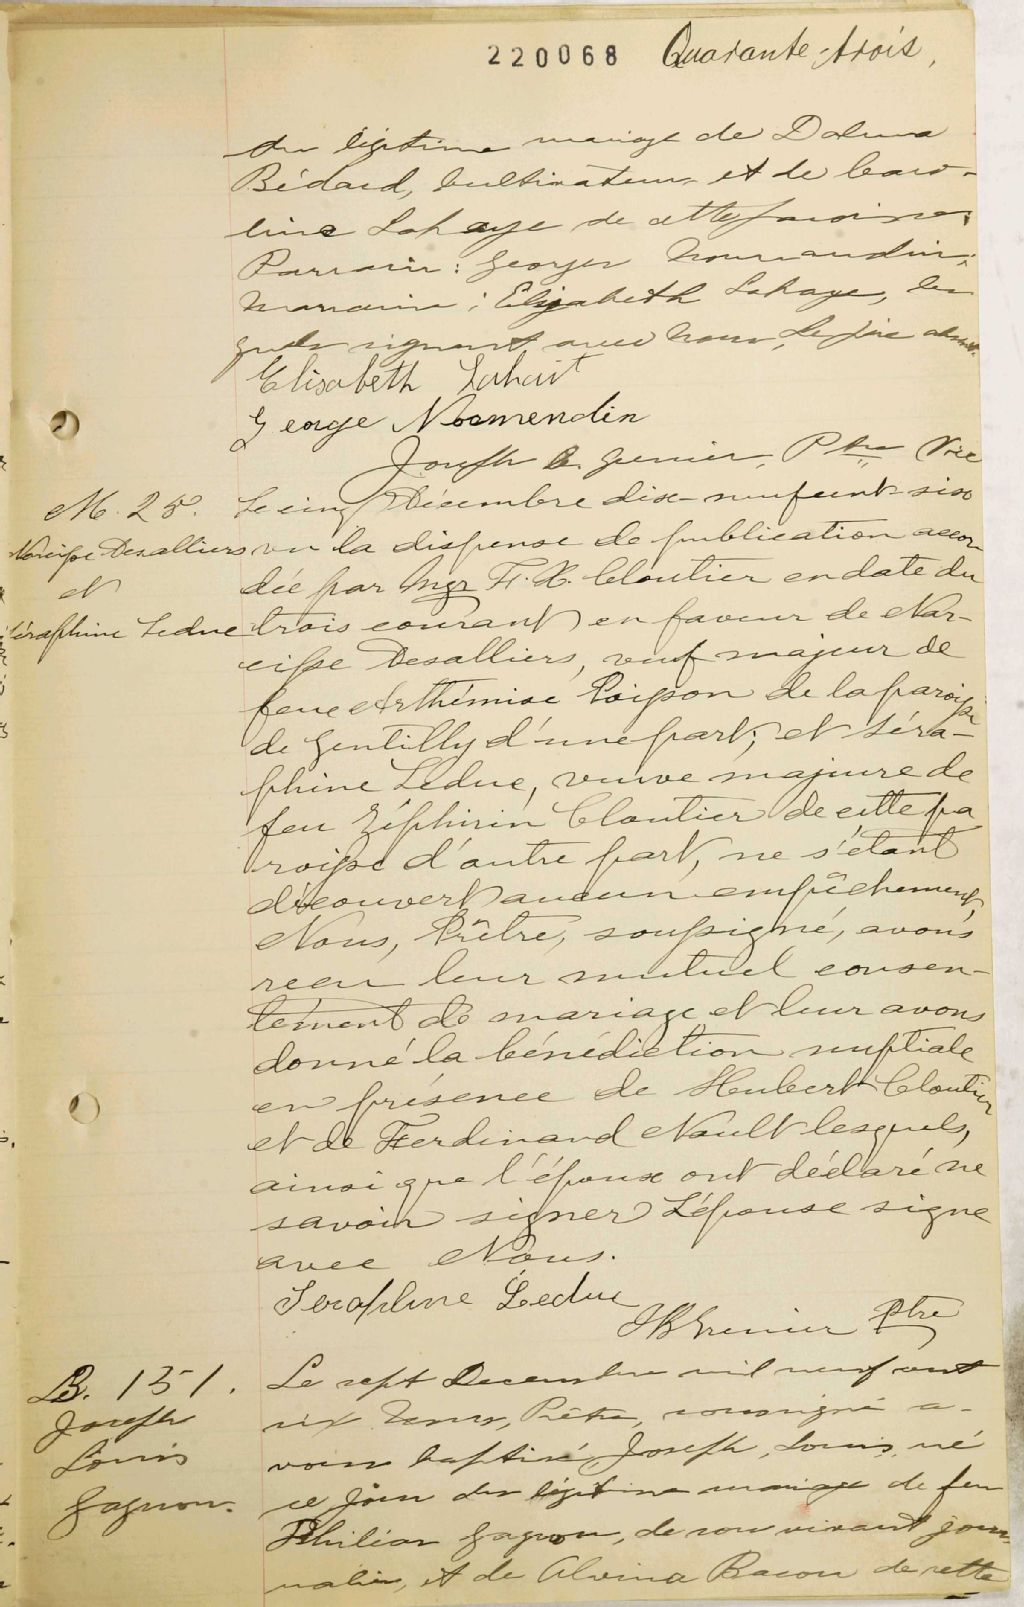 220068 Quarante-trois,
du légitime mariage de Dolma
Bédard, cultivateur et de Caro-
line Lahaye de cette paroisse.
Parrain : Georges Normandin;
marraine : Elizabeth Lahaye, les
quels signent avec nous, Le père absent.
Elisabeth Lahait
George Normendin
Joseph E. Grenier, Ptre Vic
M. 25.
Narcisse Desalliers
et
Séraphine Leduc
Le cinq Décembre dix-neuf cent six
vu la dispense de publication accor-
dée par Mgr F. X. Cloutier en date du
trois courant en faveur de Nar-
cisse Desalliers, veuf majeur de
feue Arthémise Poisson de la paroisse
de Gentilly d'une part; et Séra-
phine Leduc, veuve majeure de
feu Zéphirin Cloutier de cette pa
roisse d'autre part, ne s'étant
découvert aucun empêchement,
Nous, Prêtre, soussigné, avons
reçu leur mutuel consen-
tement de mariage et leur avons
donné la bénédiction nuptiale
en présence de Hubert Cloutier
et de Ferdinand Nault lesquels,
ainsi que l'époux ont déclaré ne
savoir signer L'épouse signe
avec Nous.
Seraphine Leduc
JBGrenier Ptre
B. 151.
Joseph
Louis
Gagnon.
Le sept Decembre mil neuf cent
six Nous, Prêtre, soussigné a-
vons baptisé Joseph, Louis, né
ce jour du légitime mariage de feu
Philias Gagnon, de son vivant jour
nalier, et de Alvina Bacon de cette